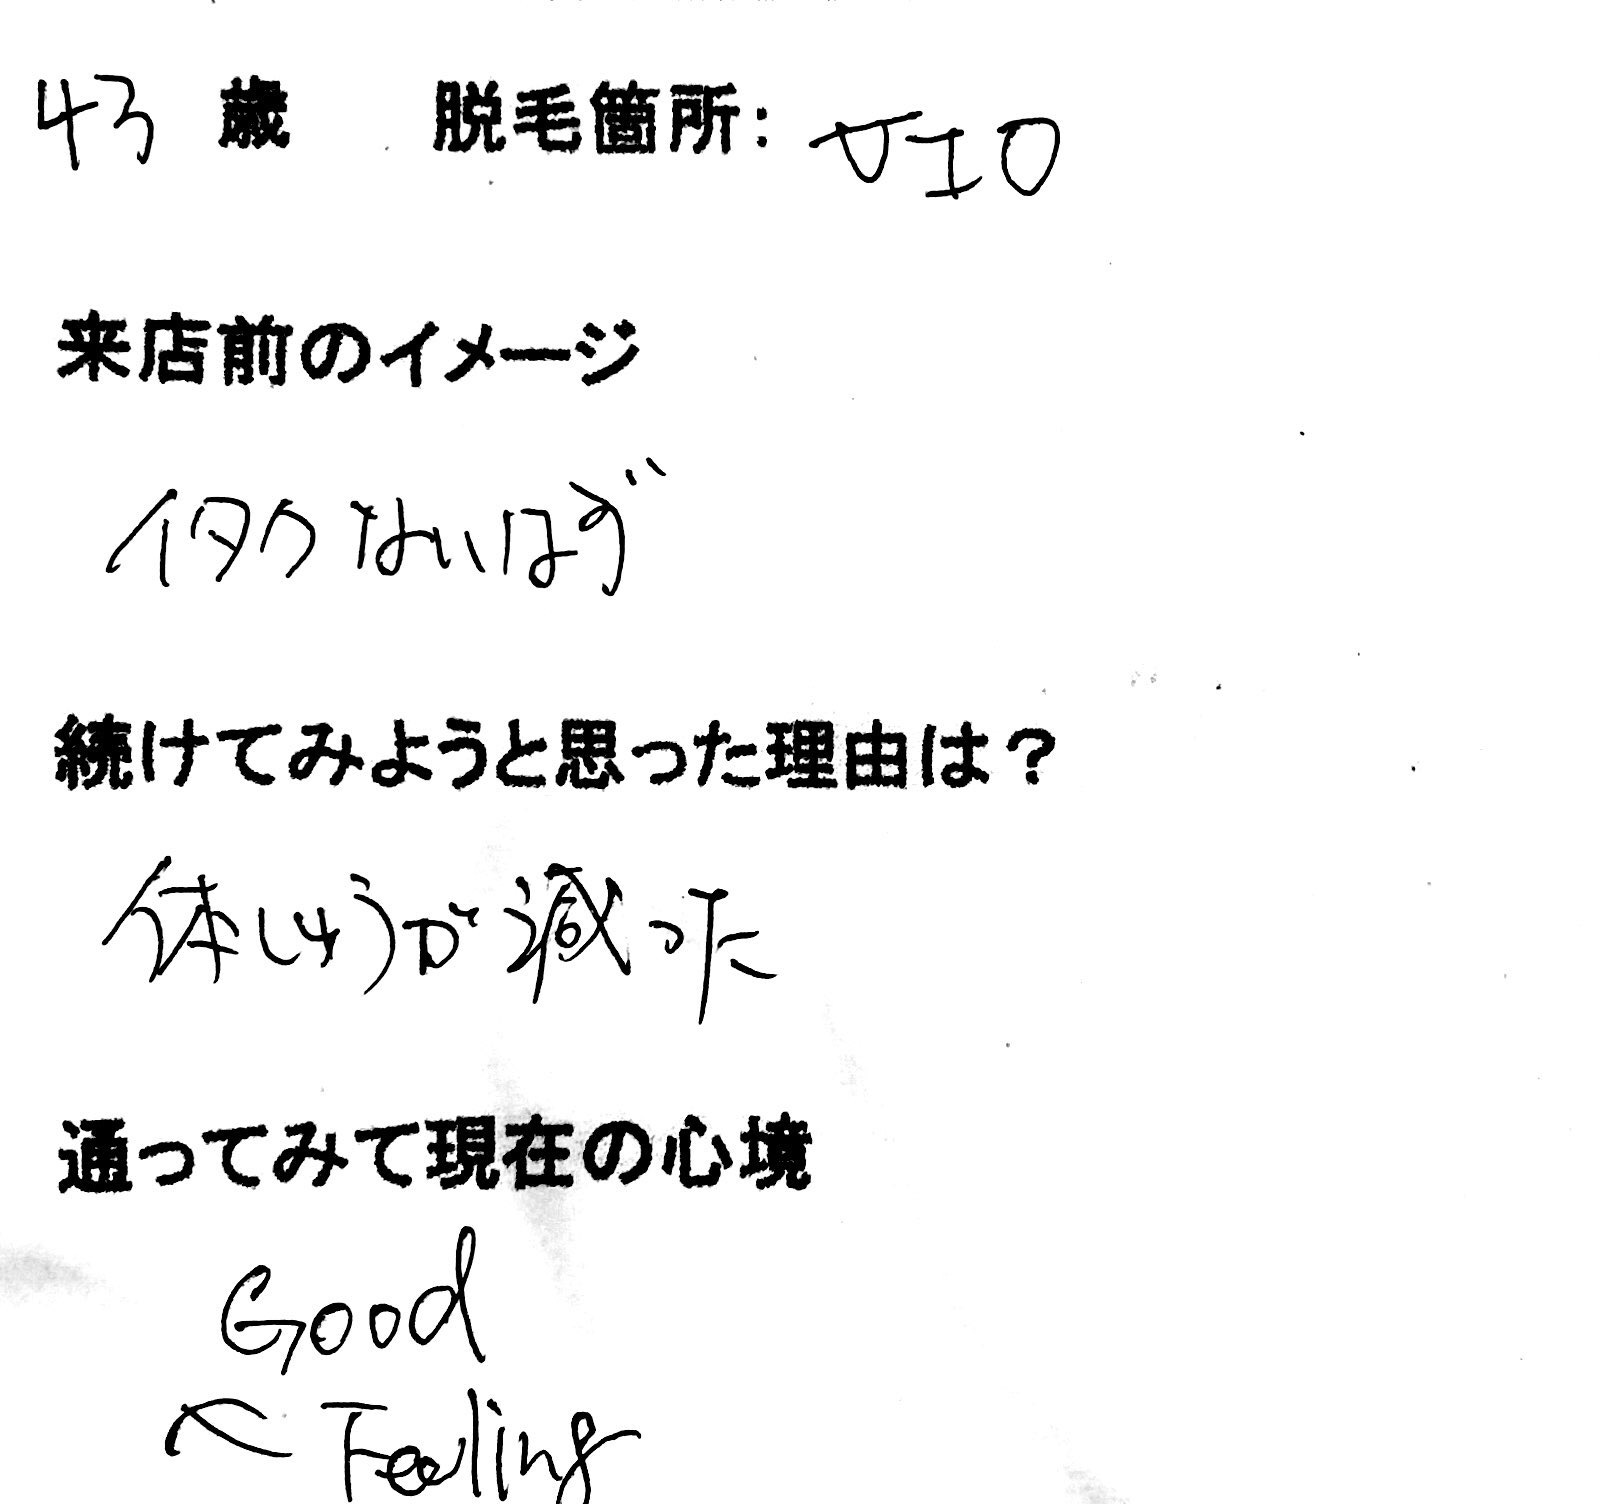 43 歳 脱毛箇所: VIO
来店前のイメージ
イタクないはず
続けてみようと思った理由は?
体しゅうが減った
通ってみて現在の心境
Good
Feeling